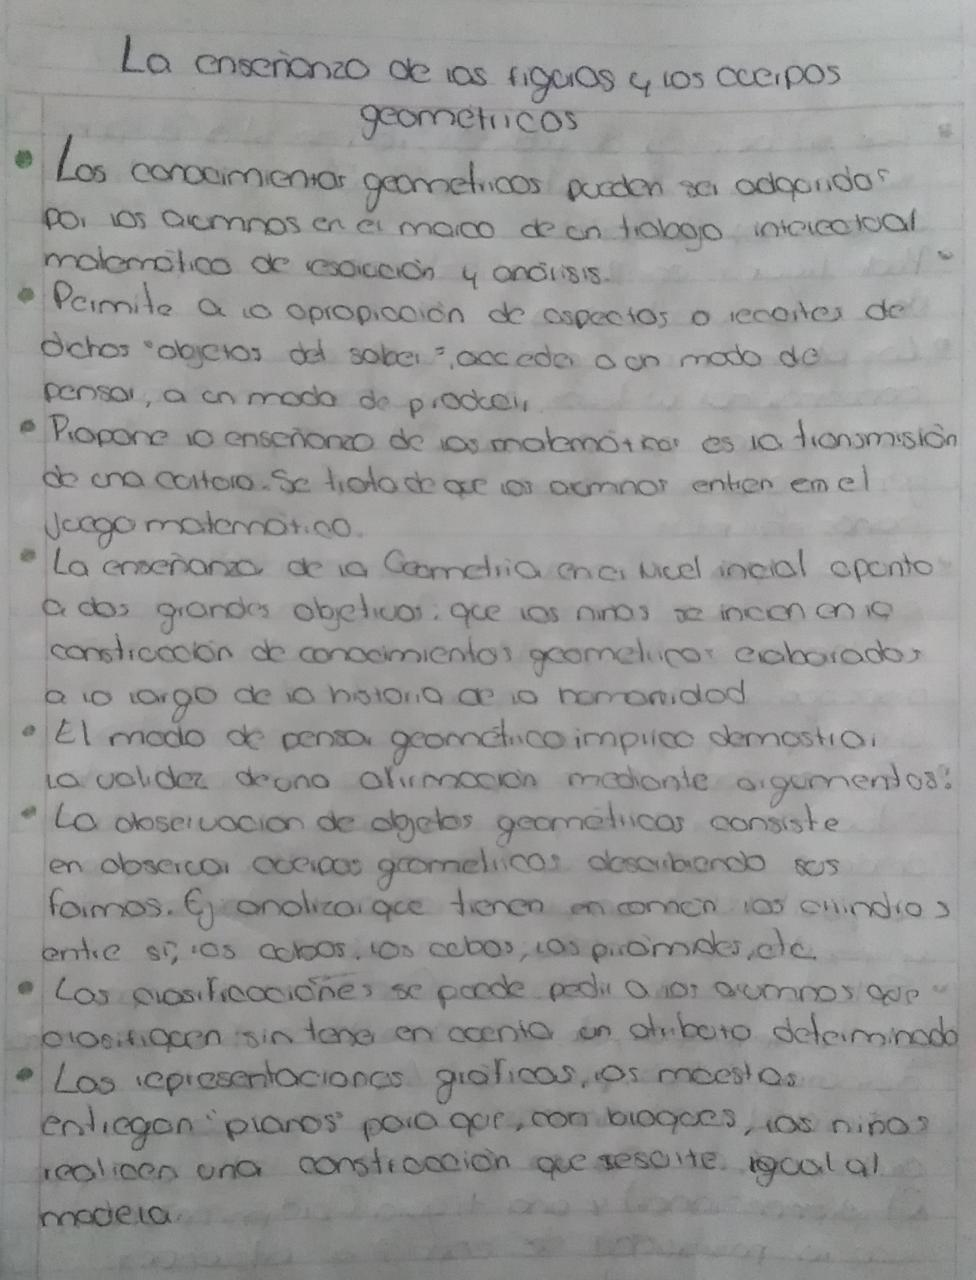 La enseñanza de las figuras y los cuerpos
geometricos
• Los conocimientos geometricos pueden ser adquiridos
por los alumnos en el marco de un trabajo intelectual
matemático de resolución y análisis.
• Permite a la apropiación de aspectos o recortes de
dichos "objetos del saber", acceder a un modo de
pensar, a un modo de producir.
• Propone la enseñanza de las matemáticas es la transmisión
de una cultura. Se trata de que los alumnos entren em el
juego matemático.
• La enseñanza de la Geometria en el Nivel inicial apunta
a dos grandes objetivos: que los niños se inicen en la
construcción de conocimientos geometricos elaborados
a lo largo de la historia de la humanidad
• El modo de pensar geométrico implica demostrar
la validez de una afirmación mediante argumentos.
• La observacion de objetos geométricos consiste
en observar cuerpos geometricos describiendo sus
formas. Ej analizar que tienen en comun los cilindros
entre sí, los cubos, los cubos, las piramides, etc.
• Las clasificaciones se puede pedir a los alumnos que
clasifiquen sin tener en cuenta un atributo determinado
• Las representaciones gráficas, los maestros
entregan "planos" para que, con bloques, los niños
realicen una construcción que resulte igual al
modelo.